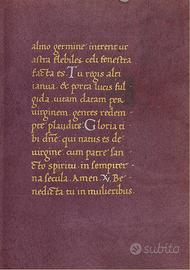 almo germine intrent ut
astra flebiles celi fenestra
facta es. Tu regis alti
ianua & porta lucis ful
gida vitam datam per
virginem, gentes redem
pte plaudite. Gloria ti
bi dne, qui natus es de
virgine cum patre san
cto spiritu in sempiter
na secula. Amen. V. Be
nedicta tu in mulieribus.
subito